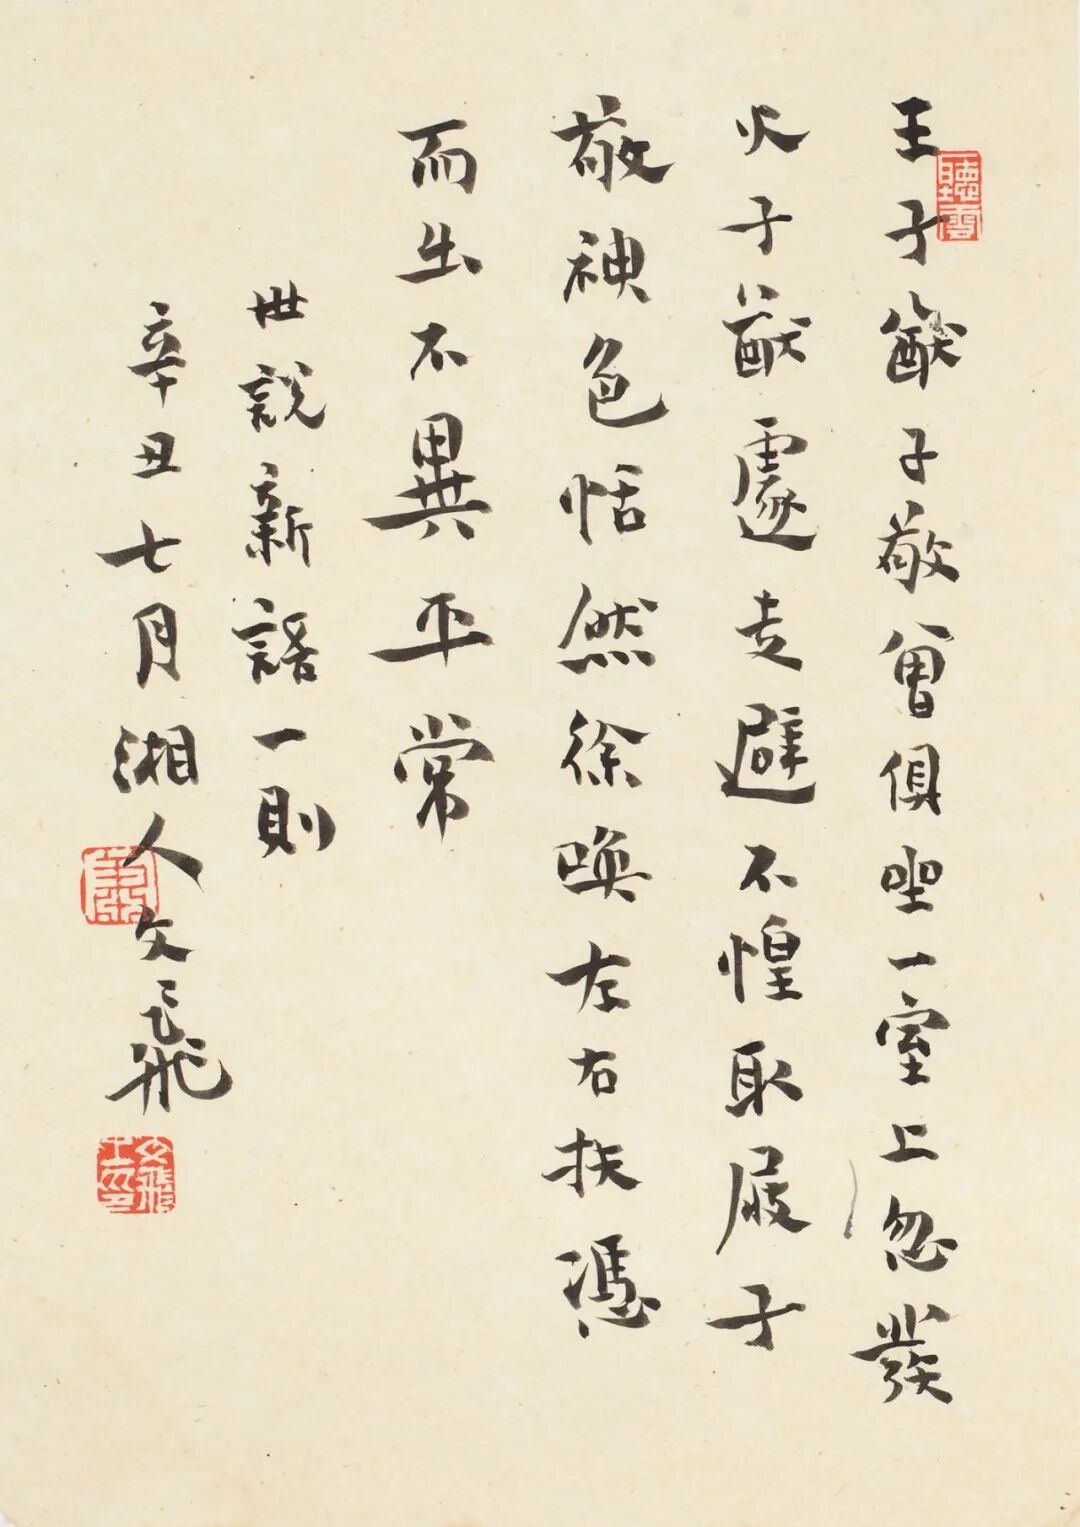 王子猷子敬曾俱坐一室上忽發
火子猷遽走避不惶取屐子
敬神色恬然徐喚左右扶憑
而出不異平常
世説新語一則
辛丑七月湘人文飛
聽雲